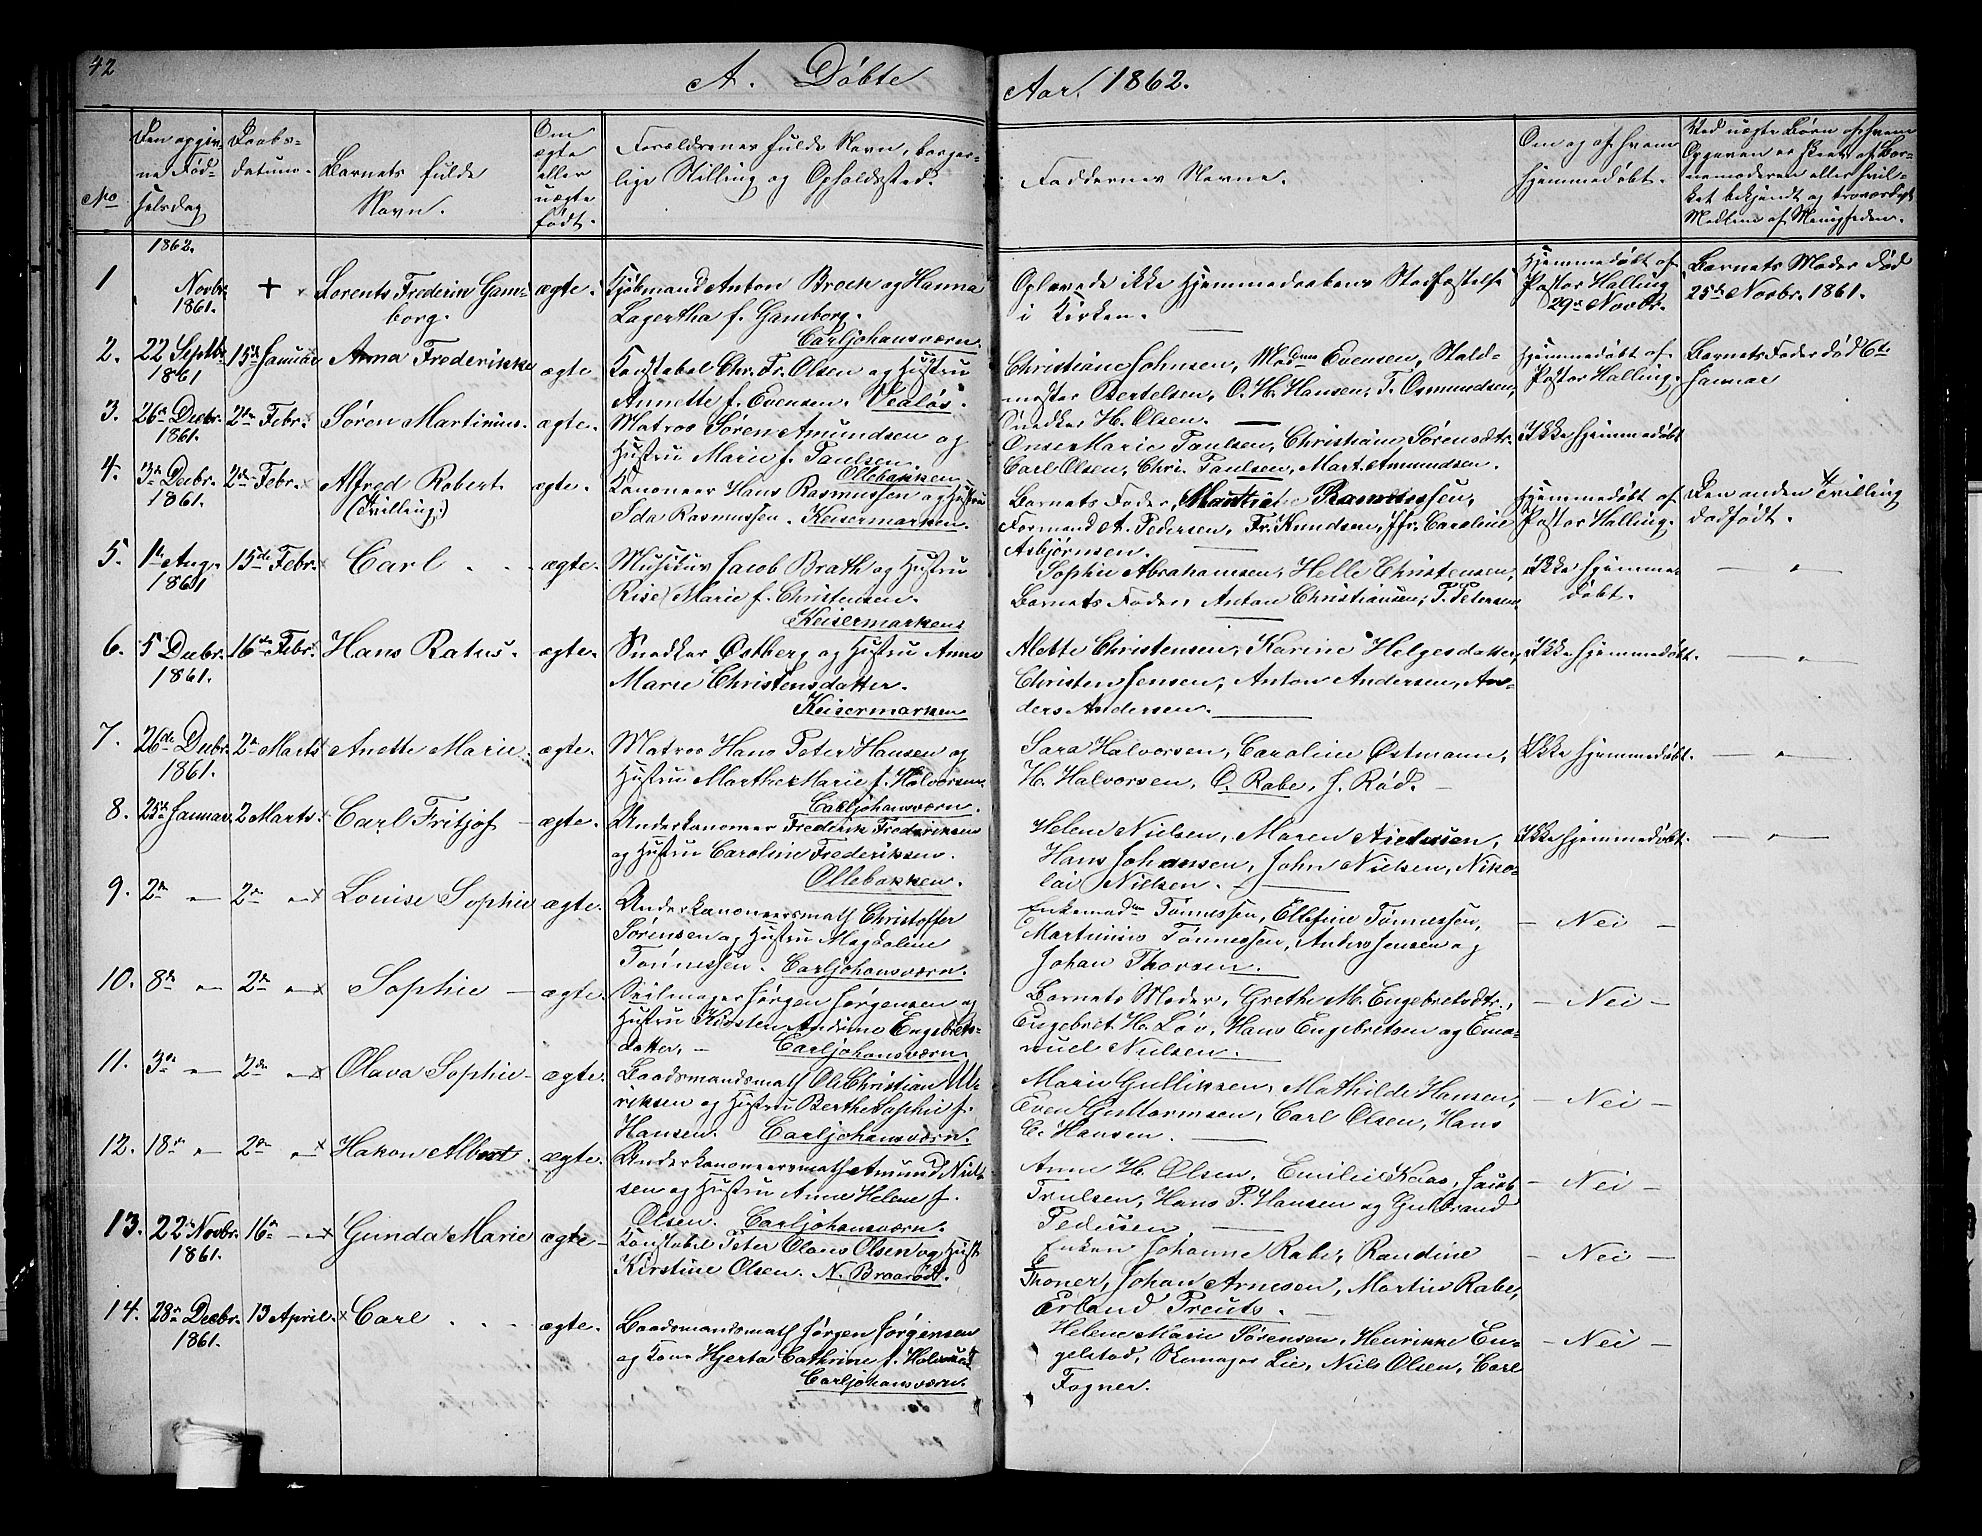 42
A. Döbte
Aar, 1862.
No
Den opgiv-
ne Föd-
selsdag
Daabs-
datum.
Barnets fulde
Navn.
Om
ægte
eller
uægte
födt.
Forældrenes fulde Navn, borger-
lige Stilling og Opholdssted.
Faddernes Navne.
Om og af hvem
hjemmedöbt.
Ved uægte Börn af hvem
Opgaven er skeet af Bar-
nemoderen eller hvil-
ket bekjendt og troværdigt
Medlem af Menigheden.
1862.
1
Novbr
1861.
+
Lorents Frederik Gam-
borg.
ægte.
Kjöbmand Anton Brock og Hanna
Lagertha f. Gamborg.
Carljohansværn.
Oplevede ikke Hjemmedaabens Stadfæstelse
i Kirken.
Hjemmedöbt af
Pastor Halling
29de Novbr.
Barnets Moder död
25de Novbr. 1861.
2.
22 Septbr
1861
15de Januar
Anna Frederikke
ægte
Konstabel Chr. Fr. Olsen og Hustru
Annette f. Evensen. Vealös.
Christiane Johnsen, Madme Evensen, Stald-
mester Bertelsen, O. H. Hansen, T. Osmundsen,
Snedker H. Olsen.
Hjemmedöbt af
Pastor Halling.
Barnets Fader död 6te
Januar
3.
26de Decbr.
1861.
2den Febr.
Sören Martinius.
ægte.
Matros Sören Amundsen og
Hustru Marie f. Paulsen.
Ollebakken.
Marie Paulsen, Christiane Sörensdtr.
Carl Olsen, Chr. Paulsen, Mart. Amundsen.
Ikke hjemmedöbt
4.
3de Decbr.
1861.
2den Febr.
Alfred Robert
(Tvilling:)
ægte.
Kanoneer Hans Rasmussen og Hustru
Ida Rasmussen. Keisermarken.
Barnets Fader, Rasmussen,
Formand A. Pedersen, Fr. Knudsen, Jfr. Caroline
Asbjörnsen.
Hjemmedöbt af
Pastor Halling.
Den anden Tvilling
dödfödt.
5.
1te Aug.
1861
15de Febr.
Carl
ægte.
Musikus Jacob Brath og Hustru
Rise Marie f. Christensen.
Keisermarkens
Sophie Abrahamsen, Helle Christensen,
Barnets Fader, Anton Christiansen, P. Petersen
Ikke hjemme
döbt.
— „ —
6.
5 Decbr.
1861.
16de Febr.
Hans Ratus.
ægte.
Snedker Östberg og Hustru Anne
Marie Christensdatter.
Keisermarken
Alette Christensen, Karine Helgesdatter,
Christen Jensen, Anton Andersen, An-
ders Andersen.
Ikke hjemmedöbt.
— „ —
7.
26de Decbr.
1861.
2de Marts
Anette Marie
ægte.
Matros Hans Peter Hansen og
Hustru Marthe Marie f. Halvorsen.
Carljohansværn.
Sara Halvorsen, Caroline Östmann,
H. Halvorsen, O. Rabe, J. Röd.
Ikke hjemmedöbt.
— „ —
8.
25de Januar.
2 Marts.
Carl Fritjof
ægte.
Underkanoneer Frederik Frederiksen
og Hustru Caroline Frederiksen.
Ollebakken.
Helene Nielsen, Maren Andersen,
Hans Johansen, John Nielsen, Niko-
lai Nielsen.
Ikke hjemmedöbt.
— „ —
9.
2de —
2de —
Louise Sophie
ægte.
Underkanoneersmath Christoffer
Sörensen og Hustru Magdalene
Tönnessen. Carljohansværn.
Enkemadme Tönnessen, Ellefine Tönnessen,
Martinius Tönnessen, Anders Jensen og
Johan Thorsen.
— Nei —
10.
8de —
2de —
Sophie —
ægte.
Seilmager Jörgen Jörgensen og
Hustru Kirsten Andrine Engebrets-
datter, — Carljohansværn
Barnets Moder, Grethe M. Engebretsdtr.,
Engebret H. Löv, Hans Engebretsen og Ema-
nuel Nielsen.
— Nei —
11.
3de —
2de —
Olava Sophie —
ægte.
Baadsmandsmath Ole Christian Ul-
riksen og Hustru Berthe Sophie f.
Hansen. Carljohansværn.
Marie Gulliksen, Mathilde Hansen,
Even Guttormsen, Carl Olsen, Hans
C. Hansen.
— Nei —
12.
18de —
2de —
Hakon Albert.
ægte.
Underkanoneersmath Amund Niel-
sen og Hustru Anne Helene f.
Olsen. Carljohansværn.
Anne H. Olsen, Emilie Kaas, Jacob
Trulsen, Hans P. Hansen og Gulbrand
Pedersen
— Nei —
13.
22de Novbr.
1861.
16de —
Gunda Marie
ægte —
Konstabel Peter Olaus Olsen og Hustr
Kirstine Olsen. N. Braaröd.
Enken Johanne Rabe, Randine
Thoner, Johan Arnesen, Martin Rabe,
Erland Preuts.
— Nei —
14.
28de Decbr.
1861.
13 April.
Carl
ægte.
Baadsmandsmath Jörgen Jörgensen
og Kone Hjerta Cathrine f.
Carljohansværn.
Helene Marie Sörensen, Henrikke En-
gelstad, Skomager Lie, Niels Olsen, Carl
Fogner.
— Nei —